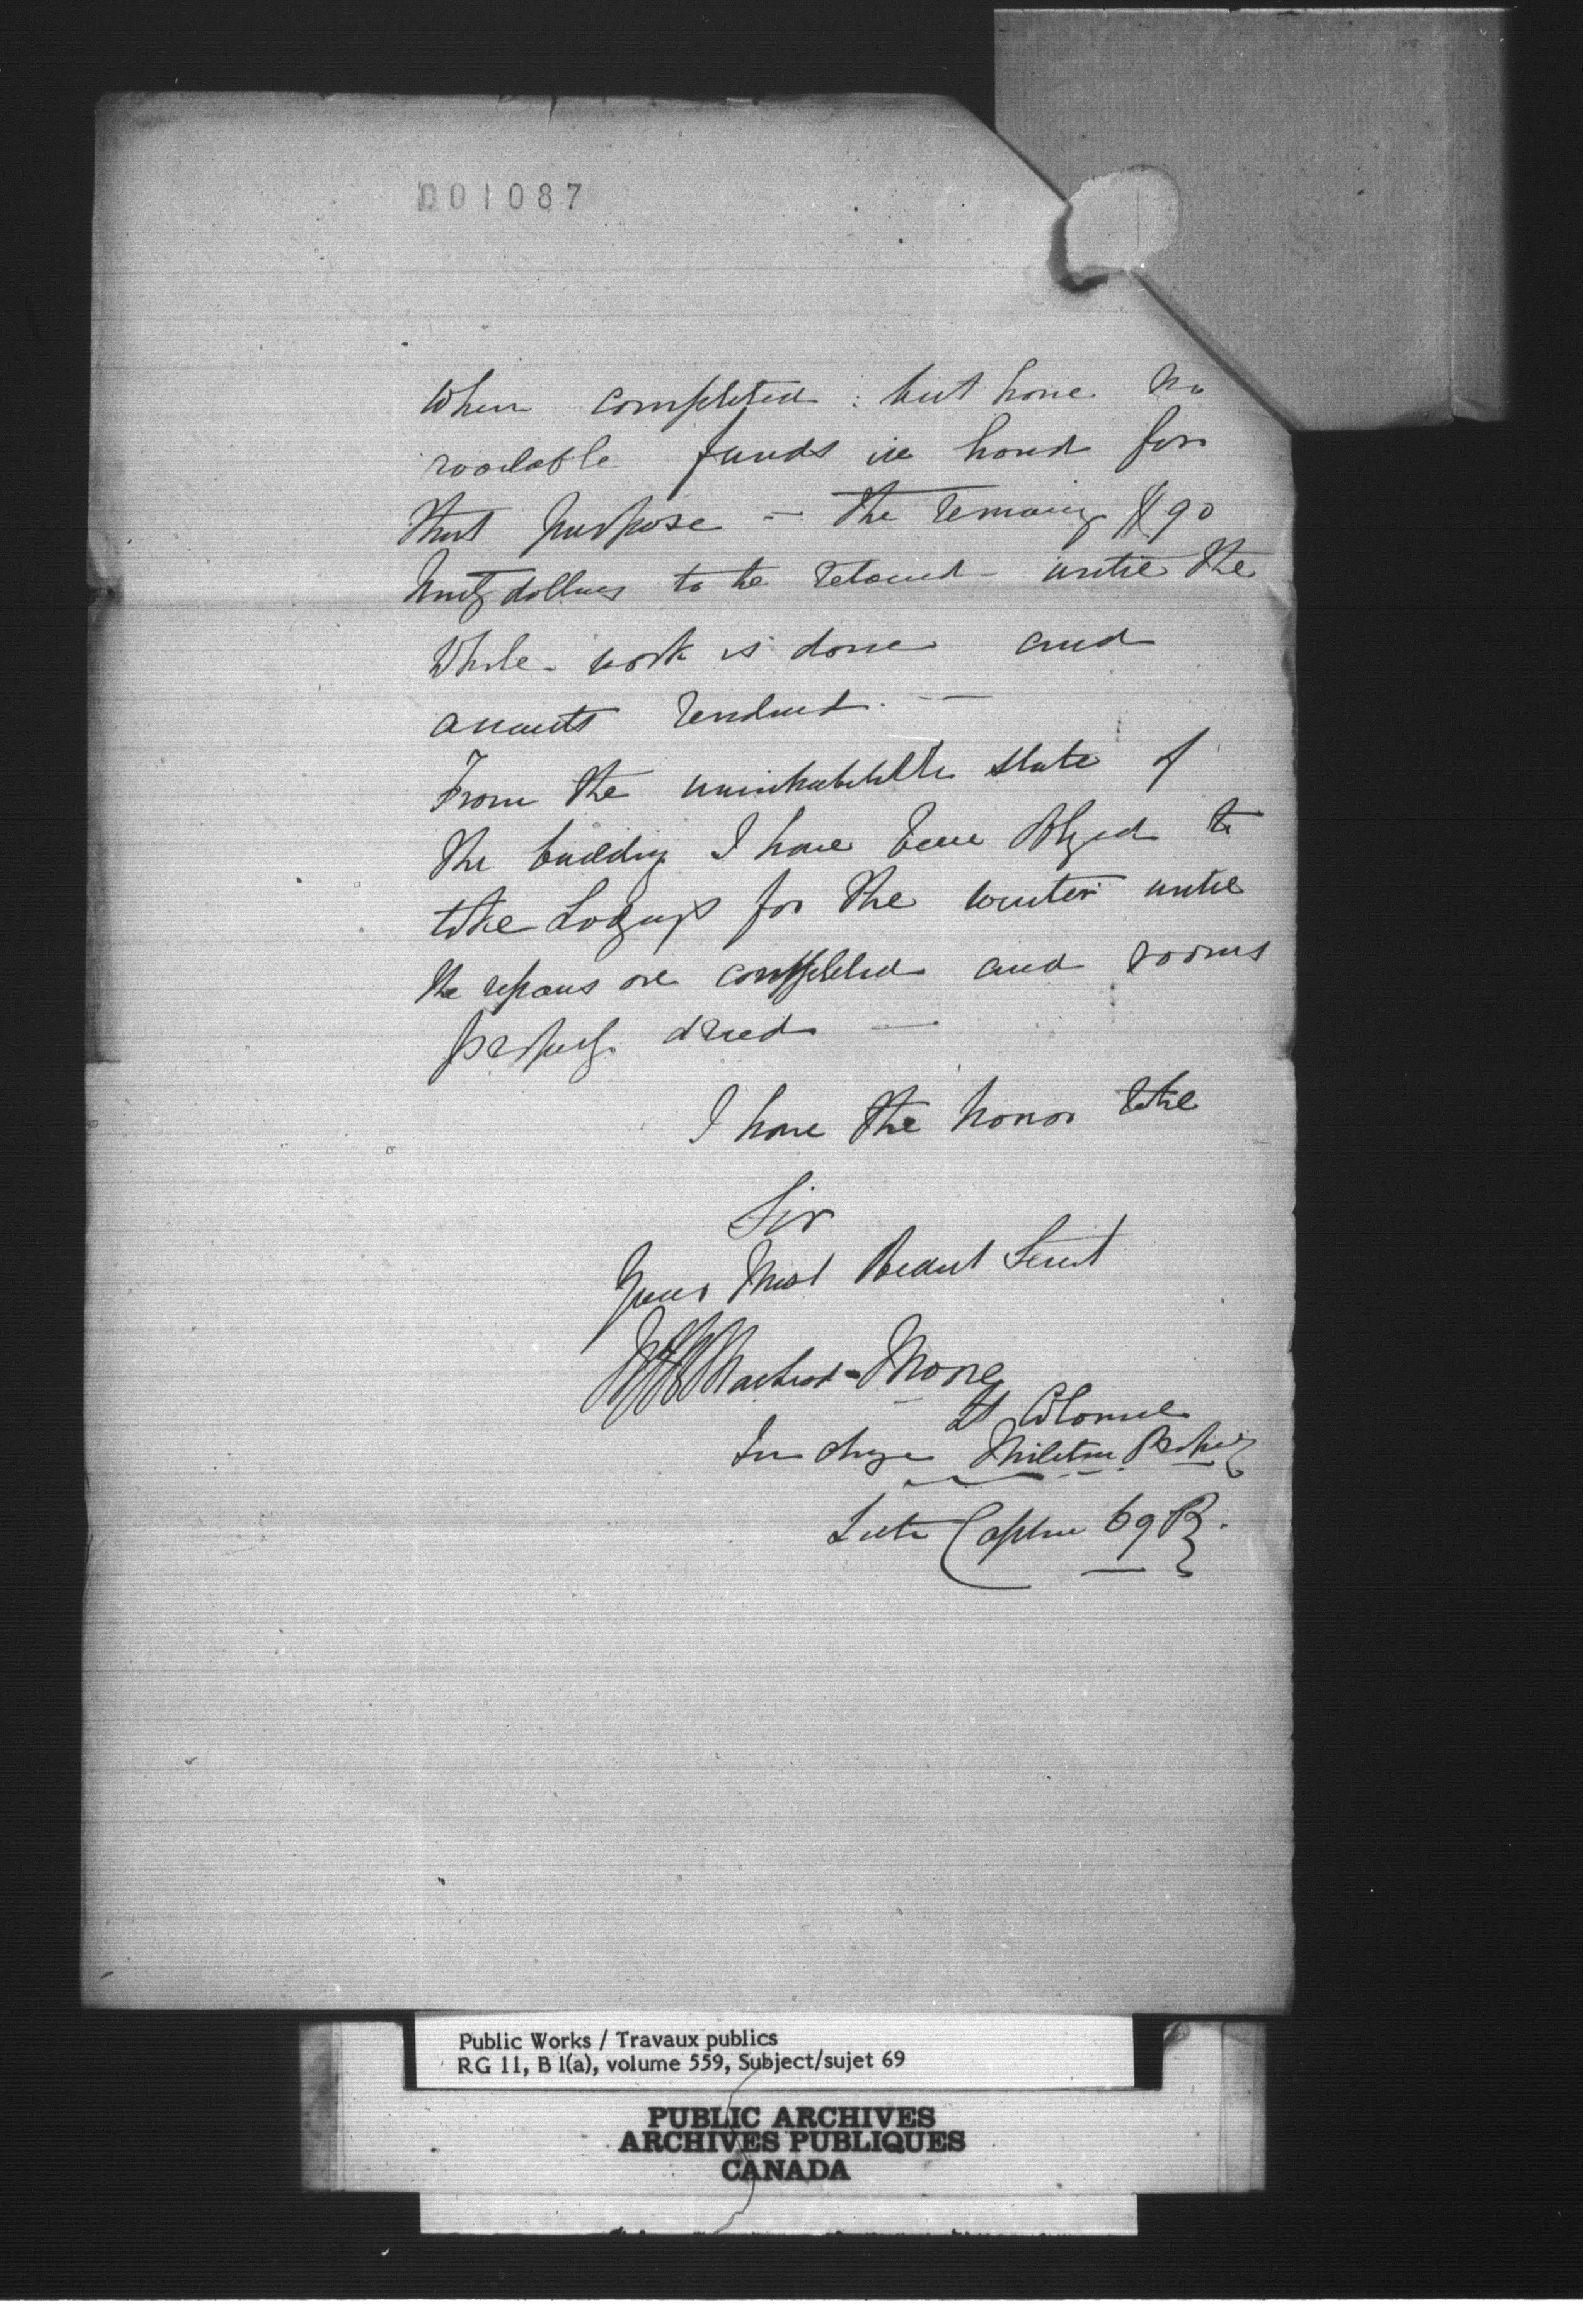 001087
When completed : but have no
available funds in hand for
that purpose — The remaing $90
Ninety dollars to be retained until the
Whole work is done and
accounts rendered. —
From the uninhabitable state of
the building I have been obliged to
take Lodgings for the winter until
the repairs are completed and rooms
properly dried —
I have the honor to be
Sir
Your Most Obedient Servt
MacLeod-Moore
Lt Colonel
In charge Military Property
Late Captain 69 R.
Public Works / Travaux publics
RG 11, B 1(a), volume 559, Subject/sujet 69
PUBLIC ARCHIVES
ARCHIVES PUBLIQUES
CANADA